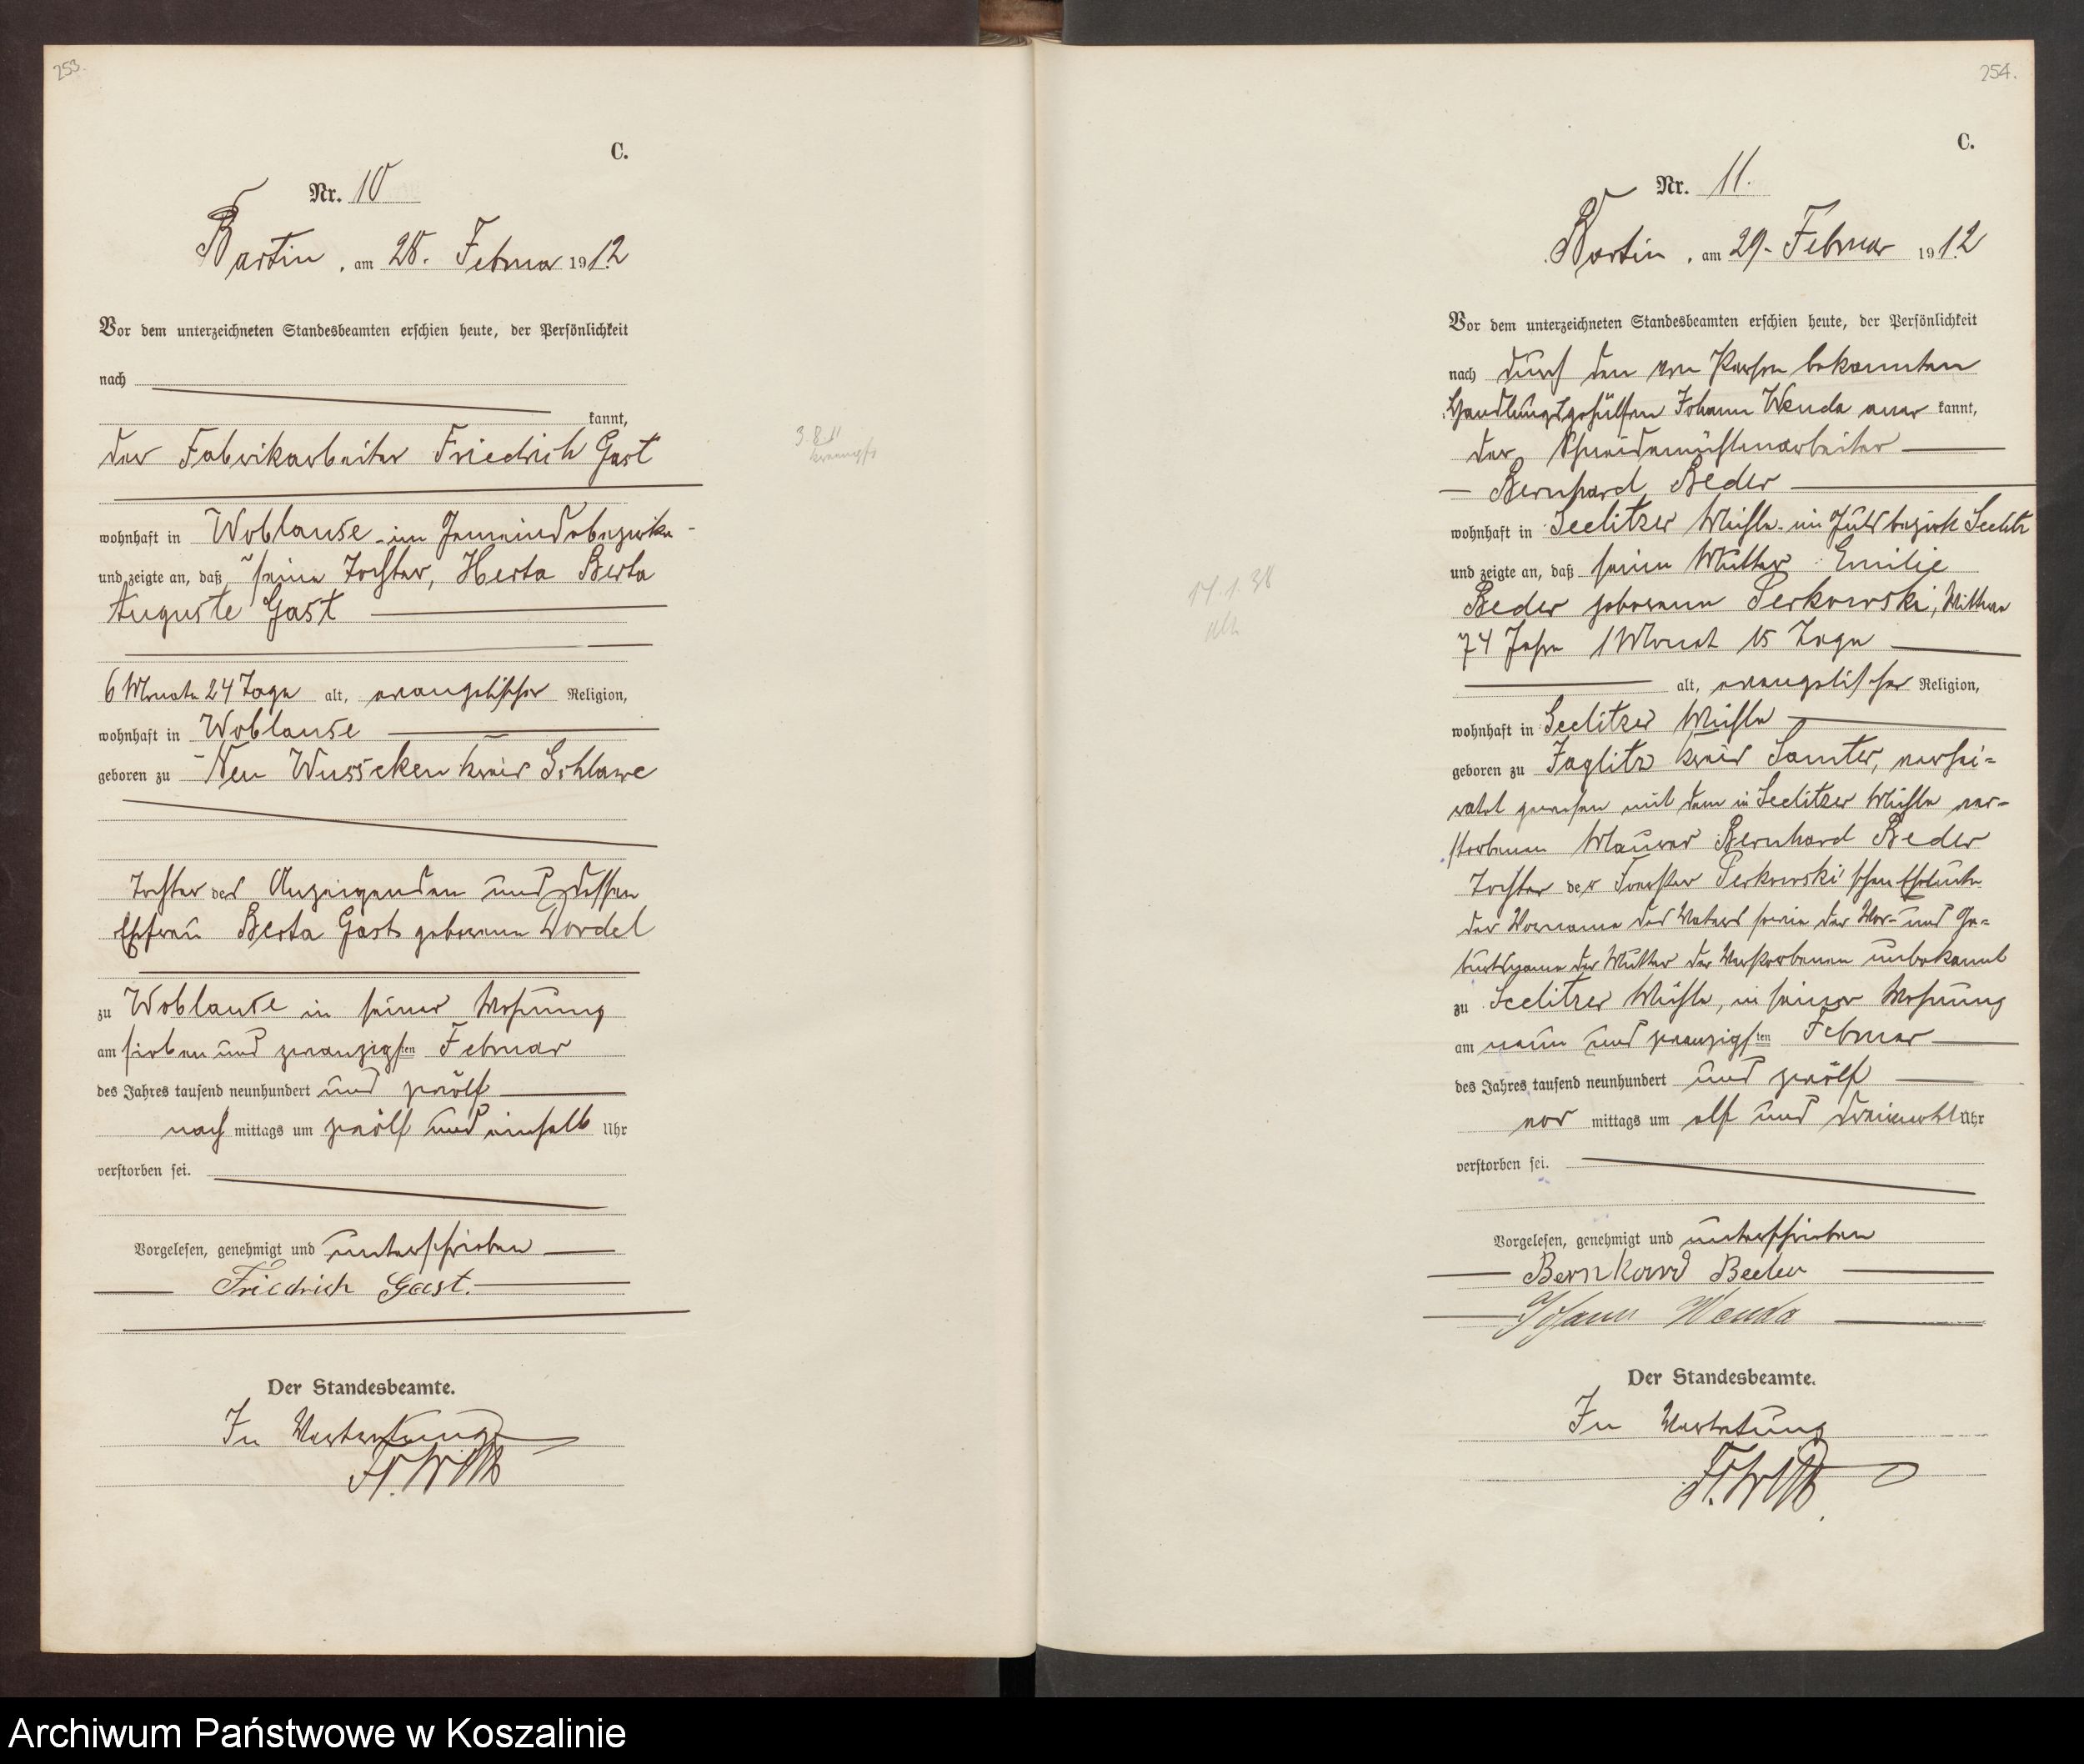 253.
C.
Nr. 10
Bartin, am 28. Februar 1912
Vor dem unterzeichneten Standesbeamten erschien heute, der Persönlichkeit
nach
kannt,
der Fabrikarbeiter Friedrich Gast
wohnhaft in Woblanse im Gemeindebezirke
und zeigte an, daß seine Tochter, Herta Berta
Auguste Gast
6 Monate 24 Tage alt, evangelischer Religion,
wohnhaft in Woblanse
geboren zu Neu Wusseken Kreis Schlawe
Tochter des Anzeigenden und dessen
Ehefrau Berta Gast geborene Dordel
zu Woblanse in seiner Wohnung
am sieben und zwanzigsten Februar
des Jahres tausend neunhundert und zwölf
nach mittags um zwölf und einhalb Uhr
verstorben sei.
Vorgelesen, genehmigt und unterschrieben
Friedrich Gast.
Der Standesbeamte.
In Vertretung
3.8.11
254.
C.
Nr. 11.
Bartin, am 29. Februar 1912
Vor dem unterzeichneten Standesbeamten erschien heute, der Persönlichkeit
nach durch den von Person bekannten
Handlungsgehülfen Johann Wenda aner kannt,
der Schneidemühlenarbeiter
Bernhard Beder
wohnhaft in Seelitzer Mühle im Gutsbezirk Seelitz
und zeigte an, daß seine Mutter Emilie
Beder geborene Perkowski, Wittwe
74 Jahre 1 Monat 15 Tage
alt, evangelischer Religion,
wohnhaft in Seelitzer Mühle
geboren zu Jaglitz Kreis Samter, verhei=
ratet gewesen mit dem in Seelitzer Mühle ver=
storbenen Maurer Bernhard Beder
Tochter der Foerster Perkowski'schen Eheleute
der Vorname des Vaters sowie der Vor- und Ge=
burtsname der Mutter der Verstorbenen unbekannt
zu Seelitzer Mühle, in seiner Wohnung
am neun und zwanzigsten Februar
des Jahres tausend neunhundert und zwölf
vor mittags um elf und dreiviertel Uhr
verstorben sei.
Vorgelesen, genehmigt und unterschrieben
Bernhard Beder
Johann Wenda
Der Standesbeamte.
In Vertretung
14.1.38
Archiwum Państwowe w Koszalinie